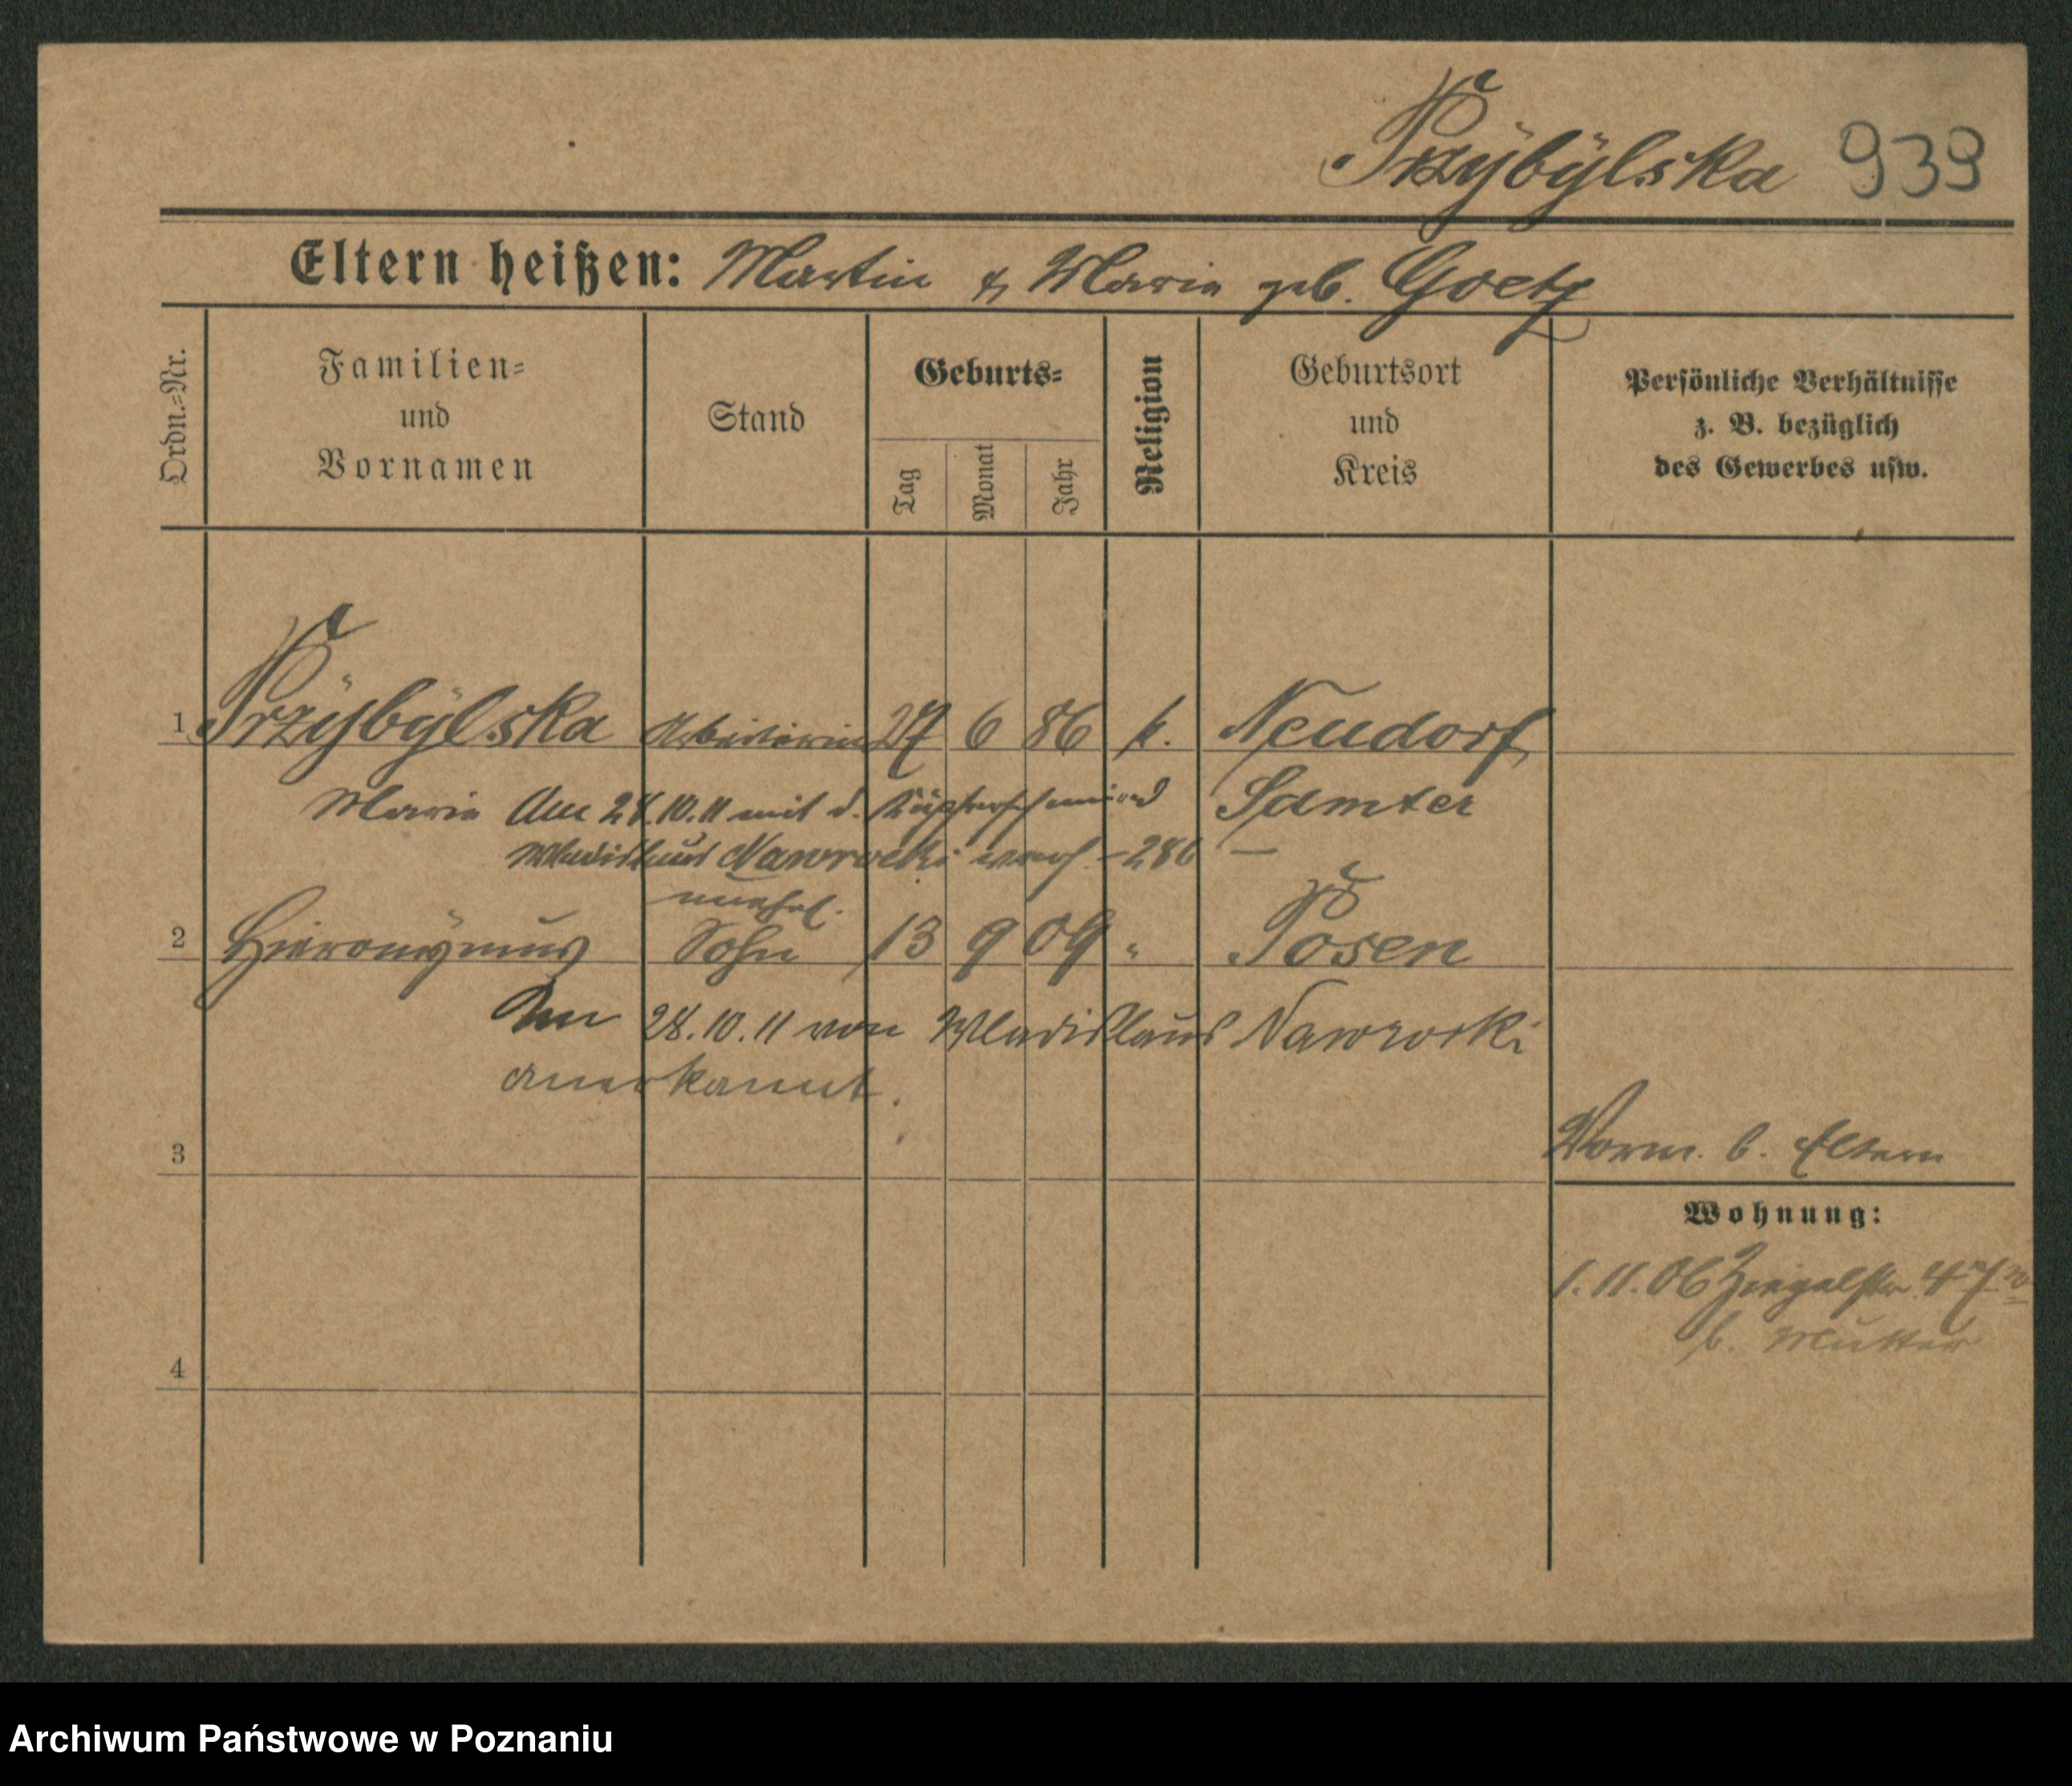 Przÿbÿlska 939
Eltern heißen: Martin & Marie geb. Goetz
Ordn.=Nr.
Familien=
und
Vornamen
Stand
Geburts=
Tag
Monat
Jahr
Religion
Geburtsort
und
Kreis
Persönliche Verhältnisse
z. B. bezüglich
des Gewerbes usw.
1 Przÿbÿlska Arbeiterin 27 6 86 k. Neudorf
Marie Am 28.10.11 mit d. Kupferschmied Samter
Wladislaus Nawrocki verh. - 286 —
unehel.
2 Hieronÿmus Sohn 13 9 09 " Posen
Am 28.10.11 von Wladislaus Nawrocki
anerkannt.
3
Vorm. b. Eltern
Wohnung:
1.11.06 Ziegelstr. 4
b. Mutter
4
Archiwum Państwowe w Poznaniu